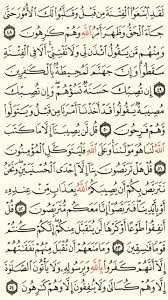 لَقَدِ ٱبْتَغَوُا۟ ٱلْفِتْنَةَ مِن قَبْلُ وَقَلَّبُوا۟ لَكَ ٱلْأُمُورَ حَتَّىٰ
جَآءَ ٱلْحَقُّ وَظَهَرَ أَمْرُ ٱللَّهِ وَهُمْ كَٰرِهُونَ ٤٨
وَمِنْهُم مَّن يَقُولُ ٱئْذَن لِّى وَلَا تَفْتِنِّىٓ أَلَا فِى ٱلْفِتْنَةِ
سَقَطُوا۟ وَإِنَّ جَهَنَّمَ لَمُحِيطَةٌۢ بِٱلْكَٰفِرِينَ
٤٩ إِن تُصِبْكَ حَسَنَةٌ تَسُؤْهُمْ وَإِن تُصِبْكَ
مُصِيبَةٌ يَقُولُوا۟ قَدْ أَخَذْنَآ أَمْرَنَا مِن قَبْلُ وَيَتَوَلَّوا۟
وَّهُمْ فَرِحُونَ ٥٠ قُل لَّن يُصِيبَنَآ إِلَّا مَا كَتَبَ
ٱللَّهُ لَنَا هُوَ مَوْلَىٰنَا وَعَلَى ٱللَّهِ فَلْيَتَوَكَّلِ ٱلْمُؤْمِنُونَ
٥١ قُلْ هَلْ تَرَبَّصُونَ بِنَآ إِلَّآ إِحْدَى ٱلْحُسْنَيَيْنِ وَنَحْنُ
نَتَرَبَّصُ بِكُمْ أَن يُصِيبَكُمُ ٱللَّهُ بِعَذَابٍ مِّنْ عِندِهِۦٓ
أَوْ بِأَيْدِينَا فَتَرَبَّصُوٓا۟ إِنَّا مَعَكُم مُّتَرَبِّصُونَ ٥٢
قُلْ أَنفِقُوا۟ طَوْعًا أَوْ كَرْهًا لَّن يُتَقَبَّلَ مِنكُمْ إِنَّكُمْ كُنتُمْ
قَوْمًا فَٰسِقِينَ ٥٣ وَمَا مَنَعَهُمْ أَن تُقْبَلَ مِنْهُمْ نَفَقَٰتُهُمْ
إِلَّآ أَنَّهُمْ كَفَرُوا۟ بِٱللَّهِ وَبِرَسُولِهِۦ وَلَا يَأْتُونَ ٱلصَّلَوٰةَ
إِلَّا وَهُمْ كُسَالَىٰ وَلَا يُنفِقُونَ إِلَّا وَهُمْ كَٰرِهُونَ ٥٤